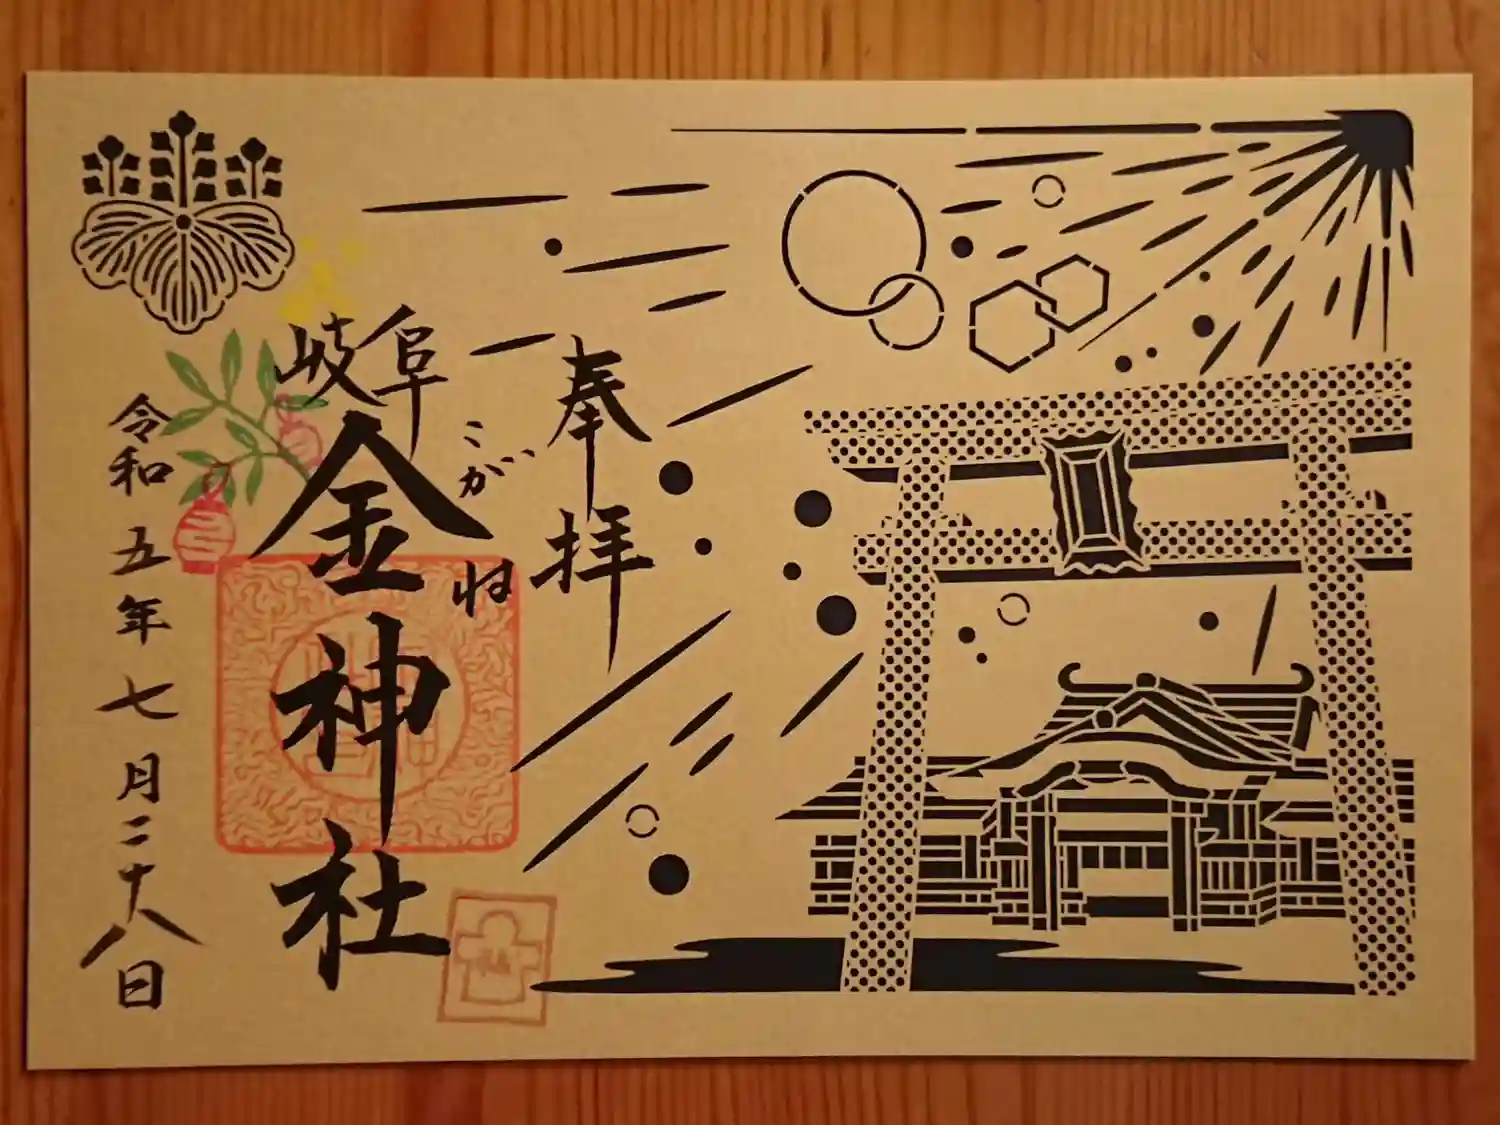 奉拝
岐阜
金神社
こがね
令和五年七月二十八日